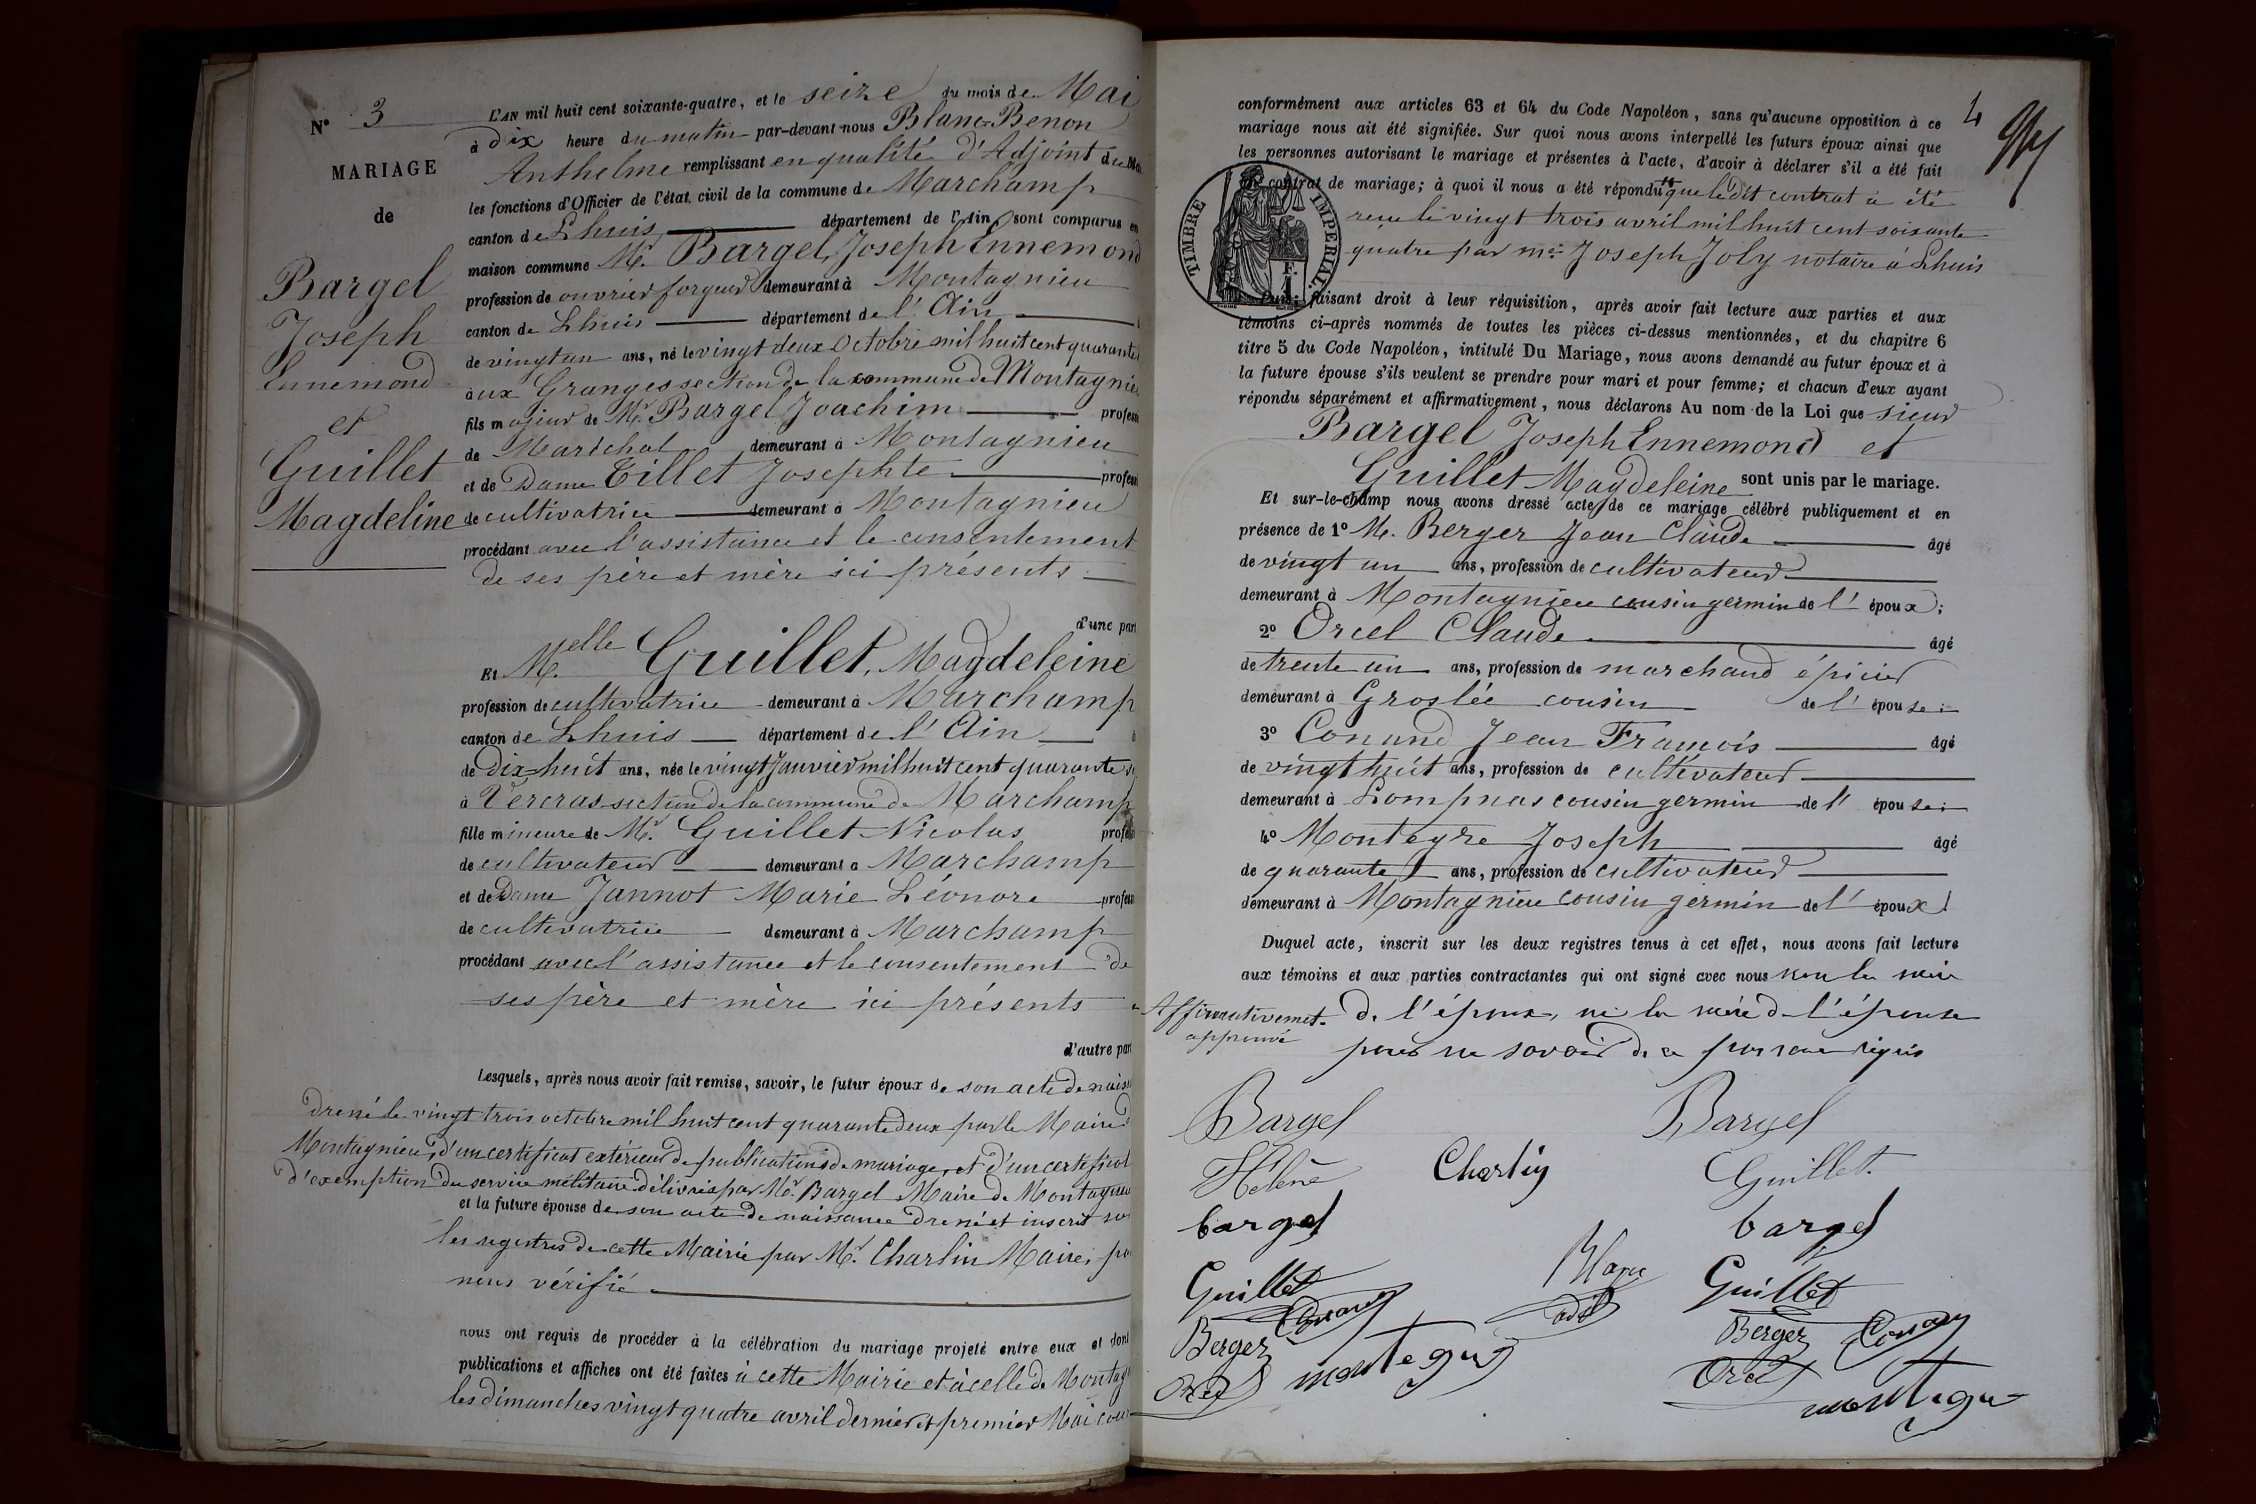 N° 3
MARIAGE
de
Bargel
Joseph
Ennemond
et
Guillet
Magdeline
L'AN mil huit cent soixante-quatre, et le seize du mois de Mai
à dix heure du matin par-devant nous Blanc-Benon
Anthelme remplissant en qualité d'Adjoint du
les fonctions d'Officier de l'état civil de la commune de Marchamp
canton de Lhuis département de l'Ain sont comparus en
maison commune Mr. Bargel, Joseph Ennemond
profession de ouvrier forgeur demeurant à Montagnieu
canton de Lhuis département de l'Ain
de vingt un ans, né le vingt deux Octobre mil huit cent quarante
aux Granges section de la commune de Montagnieu
fils majeur de Mr. Bargel Joachim profess
de Maréchal demeurant à Montagnieu
et de Dame Tillet Josephte profess
de cultivatrice demeurant à Montagnieu
procédant avec l'assistance et le consentement
de ses père et mère ici présents
d'une part
Et Melle Guillet, Magdeleine
profession de cultivatrice demeurant à Marchamp
canton de Lhuis département de l'Ain
de Dix-huit ans, née le vingt Janvier mil huit cent quarante
à Vercras section de la commune de Marchamp
fille mineure de Mr. Guillet Nicolas profess
de cultivateur demeurant à Marchamp
et de Dame Jannot Marie Léonore profess
de cultivatrice demeurant à Marchamp
procédant avec l'assistance et le consentement de
ses père et mère ici présents
d'autre part
Lesquels, après nous avoir fait remise, savoir, le futur époux de son acte de naiss
dressé le vingt trois octobre mil huit cent quarante deux par le Maire d
Montagnieu, d'un certificat extérieur de publications de mariage, et d'un certificat
d'exemption du service militaire délivrés par Mr. Bargel Maire de Montagnieu
et la future épouse de son acte de naissance dressé et inscrit sur
les registres de cette Mairie par Mr. Charlin Maire, pa
nous vérifié
nous ont requis de procéder à la célébration du mariage projeté entre eux et dont
publications et affiches ont été faites à cette Mairie et à celle de Montag
les dimanches vingt quatre avril dernier et premier Mai cour
4
conformément aux articles 63 et 64 du Code Napoléon, sans qu'aucune opposition à ce
mariage nous ait été signifiée. Sur quoi nous avons interpellé les futurs époux ainsi que
les personnes autorisant le mariage et présentes à l'acte, d'avoir à déclarer s'il a été fait
contrat de mariage; à quoi il nous a été répondu que ledit contrat a été
reçu le vingt trois avril mil huit cent soixante
quatre par me Joseph Joly notaire à Lhuis
TIMBRE IMPERIAL
F.
1
faisant droit à leur réquisition, après avoir fait lecture aux parties et aux
témoins ci-après nommés de toutes les pièces ci-dessus mentionnées, et du chapitre 6
titre 5 du Code Napoléon, intitulé Du Mariage, nous avons demandé au futur époux et à
la future épouse s'ils veulent se prendre pour mari et pour femme; et chacun d'eux ayant
répondu séparément et affirmativement, nous déclarons Au nom de la Loi que sieur
Bargel Joseph Ennemond et
Guillet Magdeleine sont unis par le mariage.
Et sur-le-champ nous avons dressé acte de ce mariage célébré publiquement et en
présence de 1° M. Berger Jean Claude âgé
de vingt un ans, profession de cultivateur
demeurant à Montagnieu cousin germin de l'époux;
2° Orcel Claude âgé
de trente un ans, profession de marchand épicier
demeurant à Groslée cousin de l'épouse;
3° Conand Jean François âgé
de vingt huit ans, profession de cultivateur
demeurant à Lompnas cousin germin de l'épouse;
4° Monteyre Joseph âgé
de quarante ans, profession de cultivateur
demeurant à Montagnieu cousin germin de l'époux
Duquel acte, inscrit sur les deux registres tenus à cet effet, nous avons fait lecture
aux témoins et aux parties contractantes qui ont signé avec nous non la mère
Affirmativemet. de l'époux, ni la mère d l'épouse
approuvé pour ne savoir de ce requis
Bargel Bargel
Hélène Charlin Guillet
bargel bargel
Guillet Blanc Guillet
Conand adj Berger Conand
Berger Orcel
Orcel